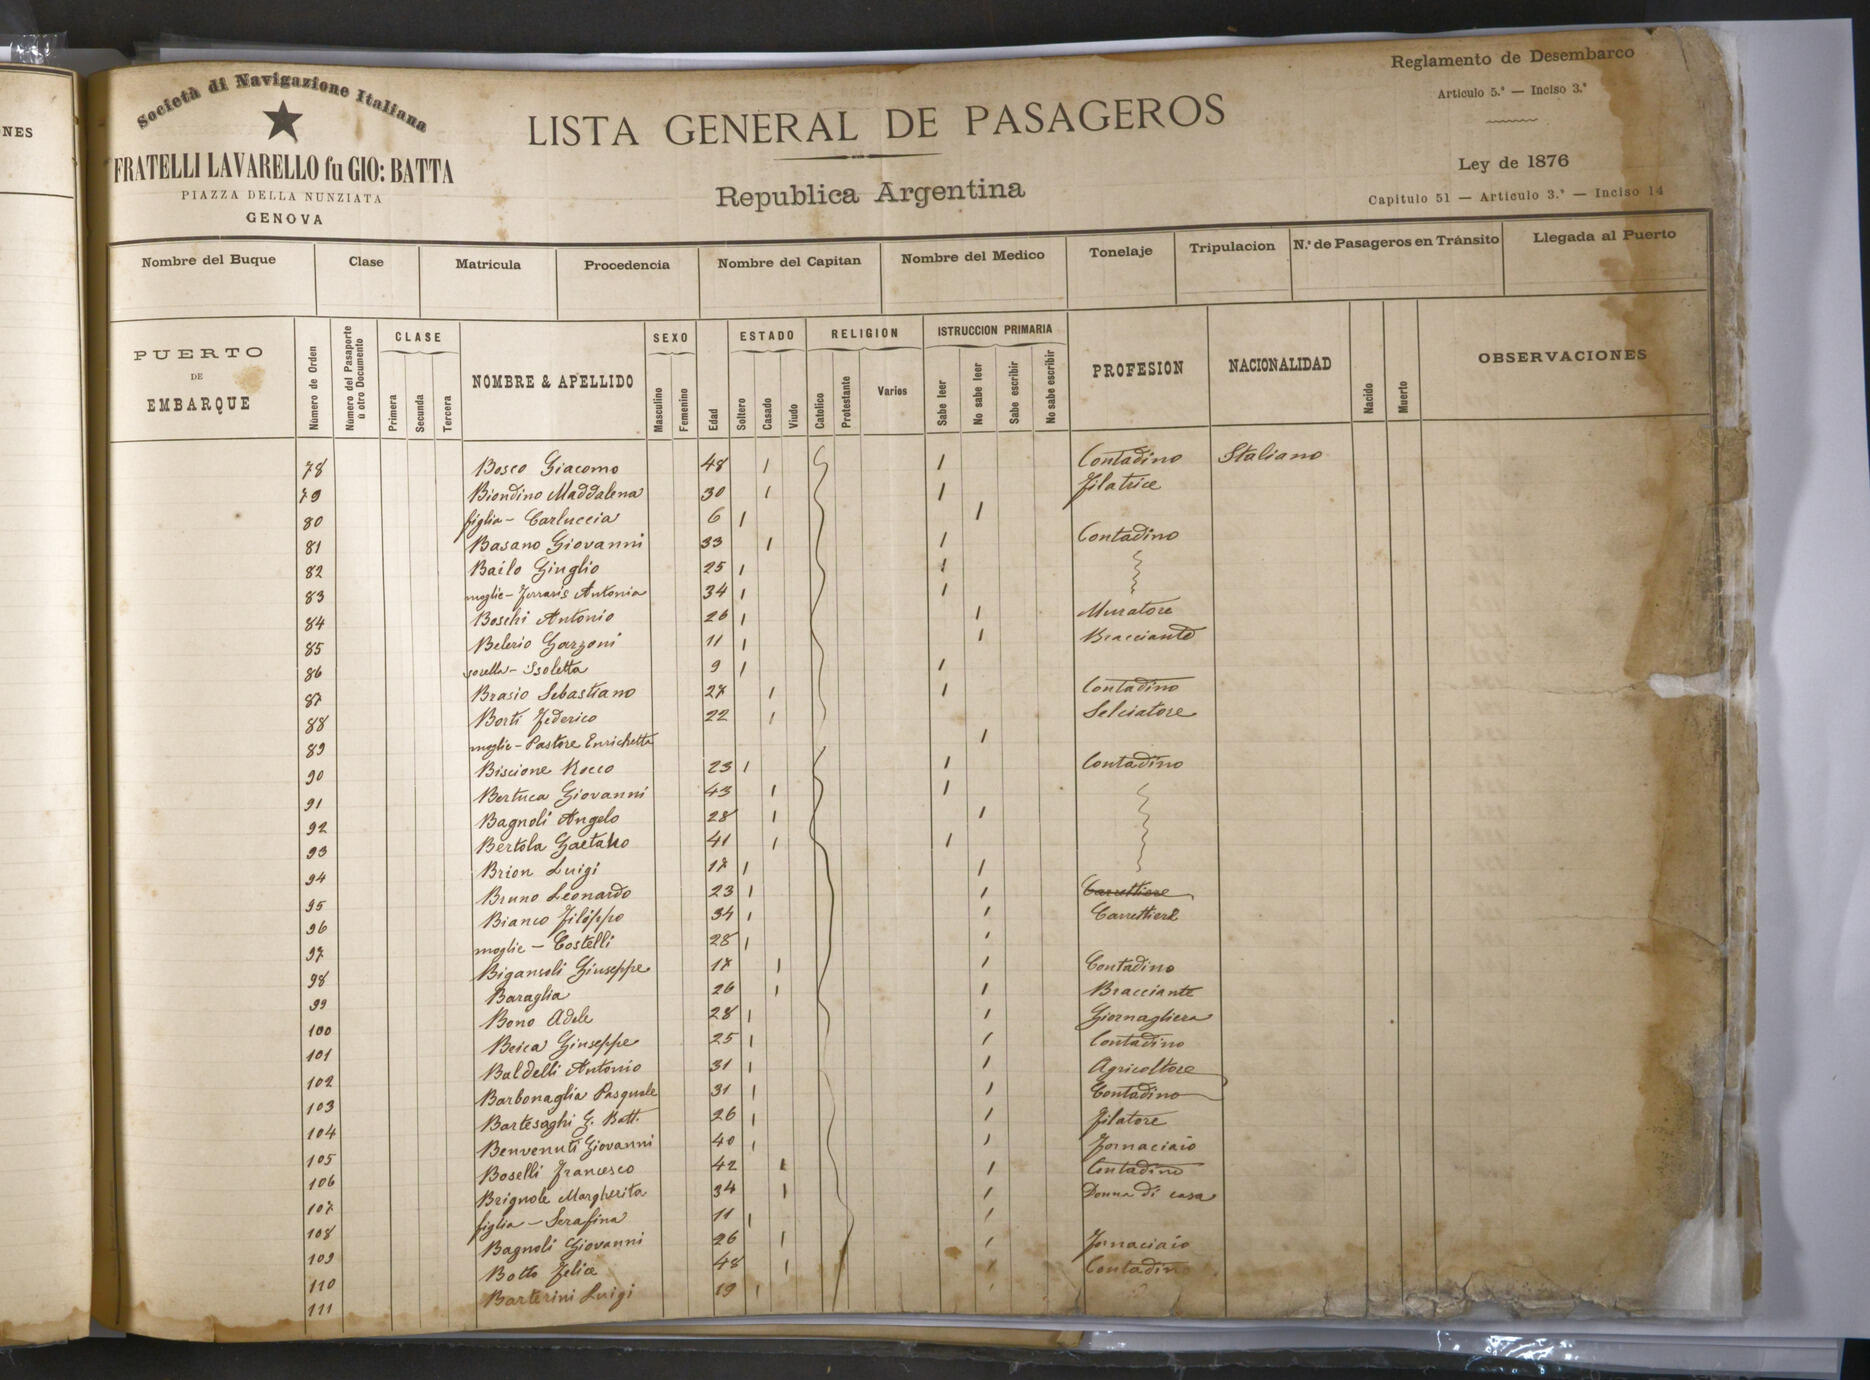 NES
Società di Navigazione Italiana
FRATELLI LAVARELLO fu GIO: BATTA
PIAZZA DELLA NUNZIATA
GENOVA
LISTA GENERAL DE PASAGEROS
Republica Argentina
Reglamento de Desembarco
Articulo 5.° — Inciso 3.°
Ley de 1876
Capitulo 51 — Articulo 3.° — Inciso 14
Nombre del Buque Clase Matricula Procedencia Nombre del Capitan Nombre del Medico Tonelaje Tripulacion N.° de Pasageros en Tránsito Llegada al Puerto
PUERTO DE EMBARQUE Número de Orden Número del Pasaporte ù otro Documento CLASE Primera Secunda Tercera NOMBRE & APELLIDO SEXO Masculino Femenino Edad ESTADO Soltero Casado Viudo RELIGION Catolico Protestante Varios ISTRUCCION PRIMARIA Sabe leer No sabe leer Sabe escribir No sabe escribir PROFESION NACIONALIDAD Nacido Muerto OBSERVACIONES
78 Bosco Giacomo 48 1 1 Contadino Italiano
79 Biondino Maddalena 30 1 1 Filatrice
80 figlia - Carluccia 6 1 1
81 Basano Giovanni 33 1 1 Contadino
82 Bailo Giuglio 25 1 1
83 moglie - Ferraris Antonia 34 1 1
84 Boschi Antonio 26 1 1 Muratore
85 Belerio Garzoni 11 1 1 Bracciante
86 sorella - Isoletta 9 1 1
87 Brasio Sebastiano 27 1 1 Contadino
88 Borti Federico 22 1 Selciatore
89 moglie - Pastore Enrichetta 1
90 Biscione Rocco 23 1 1 Contadino
91 Bertuca Giovanni 43 1 1
92 Bagnoli Angelo 28 1 1
93 Bertola Gaetano 41 1 1
94 Brion Luigi 17 1 1
95 Bruno Leonardo 23 1 1 Carrettiere
96 Bianco Filippo 34 1 1 Carrettiere
97 moglie - Costelli 28 1 1
98 Bigansoli Giuseppe 17 1 1 Contadino
99 Baraglia 26 1 1 Bracciante
100 Bono Adele 28 1 1 Giornagliera
101 Beica Giuseppe 25 1 1 Contadino
102 Baldelli Antonio 31 1 1 Agricoltore
103 Barbonaglia Pasquale 31 1 1 Contadino
104 Bartesaghi G. Batt. 26 1 1 Filatore
105 Benvenuti Giovanni 40 1 1 Fornaciaio
106 Boselli Francesco 42 1 1 Contadino
107 Brignole Margherita 34 1 1 Donna di casa
108 figlia - Serafina 11 1 1
109 Bagnoli Giovanni 26 1 1 Fornaciaio
110 Botto Felice 48 1 1 Contadino
111 Barterini Luigi 19 1 1